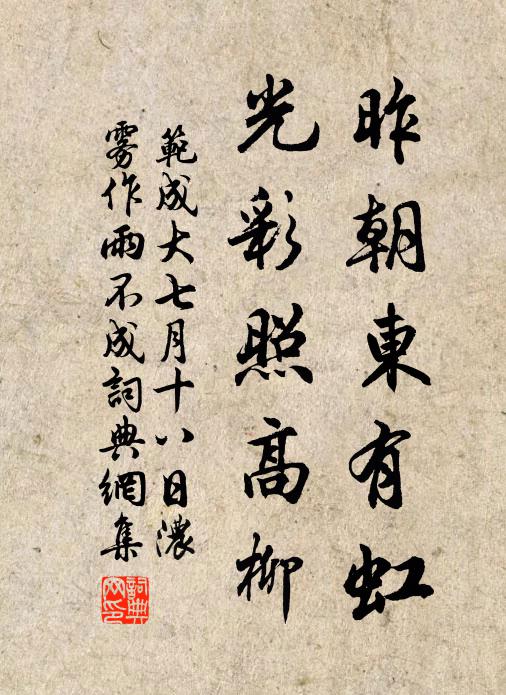 昨朝東有虹
光彩照高柳
範成大七月十八日濃
雾作雨不成詞典網集
詞典
网印